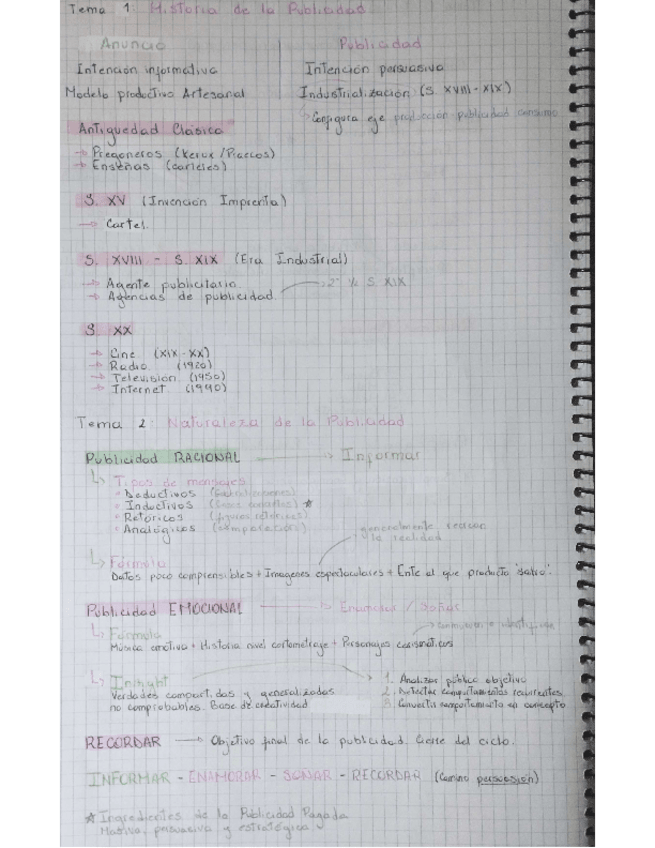 Tema 1: Historia de la Publicidad
Anuncio
Publicidad
Intención informativa
Intención persuasiva
Modelo productivo Artesanal
Industrialización (S. XVIII - XIX)
Configura eje producción publicidad consumo
Antigüedad Clásica
→ Pregoneros (Kerux /
→ Enseñas (carteles)
S. XV (Invención Imprenta)
→ Cartel.
S. XVIII - S. XIX (Era Industrial)
→ Agente publicitario
→ Agencias de publicidad → 2ª ½ S. XIX
S. XX
→ Cine (XIX - XX)
→ Radio (1920)
→ Televisión (1950)
→ Internet (1990)
Tema 2: Naturaleza de la Publicidad
Publicidad RACIONAL → Informar
↳ Tipos de mensajes
Deductivos
Inductivos ★
Retóricos (figuras retóricas)
Analógicos (comparación)
generalmente recrean
la realidad
↳ Fórmula
Datos poco comprensibles + Imagenes espectaculares + Ente al que producto "salva".
Publicidad EMOCIONAL → Enamorar / Soñar
↳ Fórmula
Música emotiva + Historia nivel cortometraje + Personajes carismáticos
↳ Insight
Verdades compartidas y generalizadas
no comprobables. Base de creatividad
1. Analizar público objetivo
2. Detectar comportamientos recurrentes
3. Convertir comportamiento en concepto
RECORDAR → Objetivo final de la publicidad. Cierre del ciclo.
INFORMAR - ENAMORAR - SOÑAR - RECORDAR (Camino persuasión)
★ Ingredientes de la Publicidad Pagada
Masiva, persuasiva y estratégica